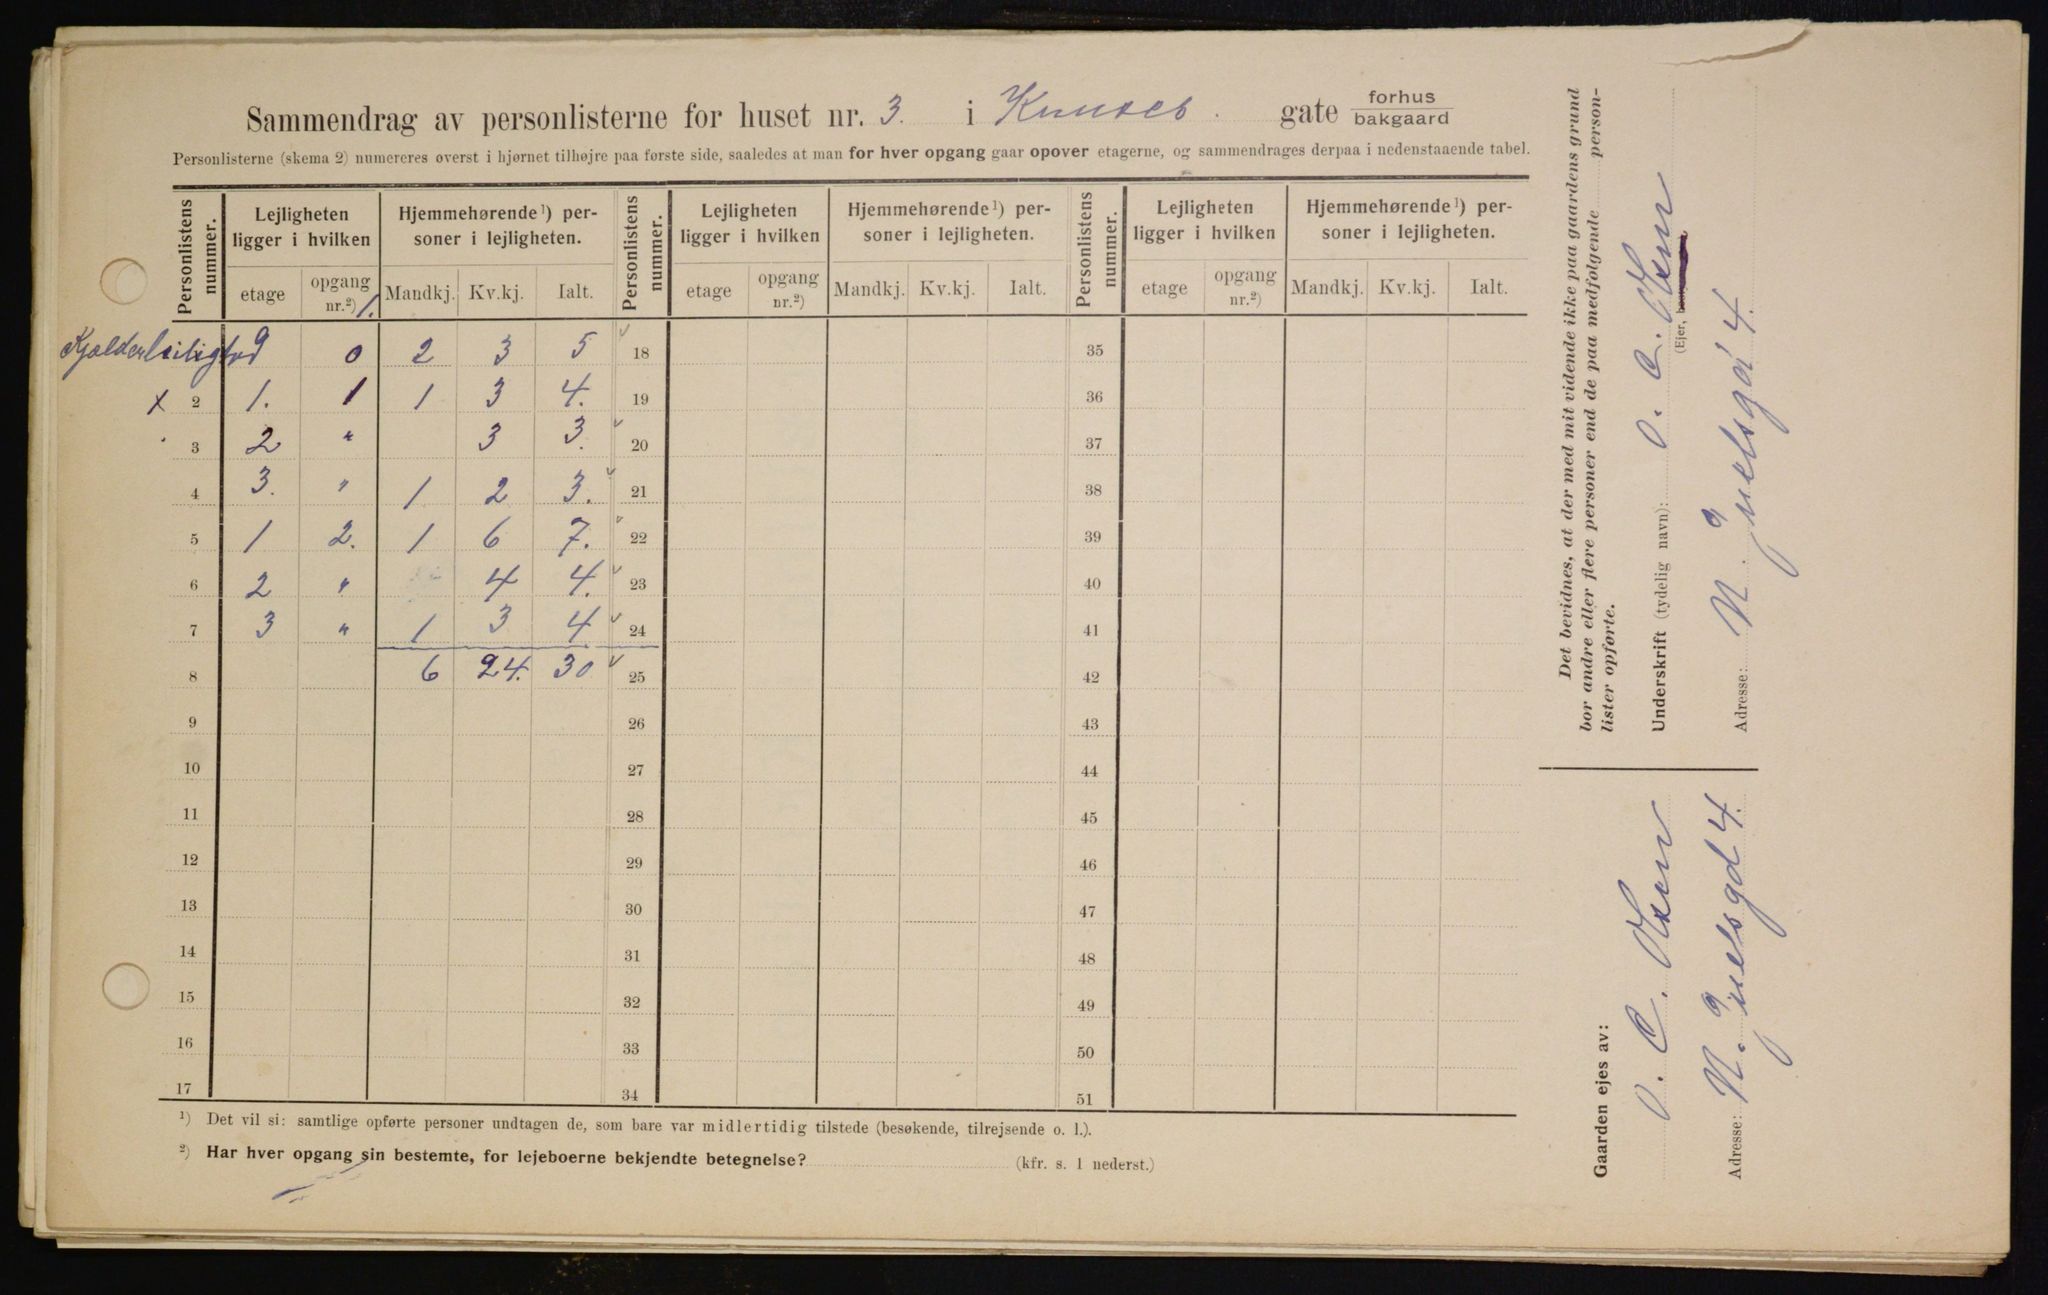 Sammendrag av personlisterne for huset nr. 3. i Knudses gate forhus bakgaard
Personlisterne (skema 2) numereres øverst i hjørnet tilhøjre paa første side, saaledes at man for hver opgang gaar opover etagerne, og sammendrages derpaa i nedenstaaende tabel.
Personlistens nummer. Lejligheten ligger i hvilken Hjemmehørende¹) personer i lejligheten. Personlistens nummer. Lejligheten ligger i hvilken Hjemmehørende¹) personer i lejligheten. Personlistens nummer. Lejligheten ligger i hvilken Hjemmehørende¹) personer i lejligheten.
etage opgang nr.²) Mandkj. Kv.kj. Ialt. etage opgang nr.²) Mandkj. Kv.kj. Ialt. etage opgang nr.²) Mandkj. Kv.kj. Ialt.
1.
Kjælderleilighed 0 2 3 5 18 35
x 2 1. 1 1 3 4. 19 36
3 2 " 3 3. 20 37
4 3. " 1 2 3. 21 38
5 1 2. 1 6 7. 22 39
6 2 " 4 4. 23 40
7 3 " 1 3 4 24 41
8 6 24. 30 25 42
9 26 43
10 27 44
11 28 45
12 29 46
13 30 47
14 31 48
15 32 49
16 33 50
17 34 51
¹) Det vil si: samtlige opførte personer undtagen de, som bare var midlertidig tilstede (besøkende, tilrejsende o. l.).
²) Har hver opgang sin bestemte, for lejeboerne bekjendte betegnelse? (kfr. s. 1 nederst.)
Det bevidnes, at der med mit vidende ikke paa gaardens grund
bor andre eller flere personer end de paa medfølgende personlister opførte.
Underskrift (tydelig navn): O. C. Olsen
(Ejer,
Adresse: N. Juelsgd 4.
Gaarden ejes av:
O. C. Olsen
Adresse: N. Juelsgd 4.